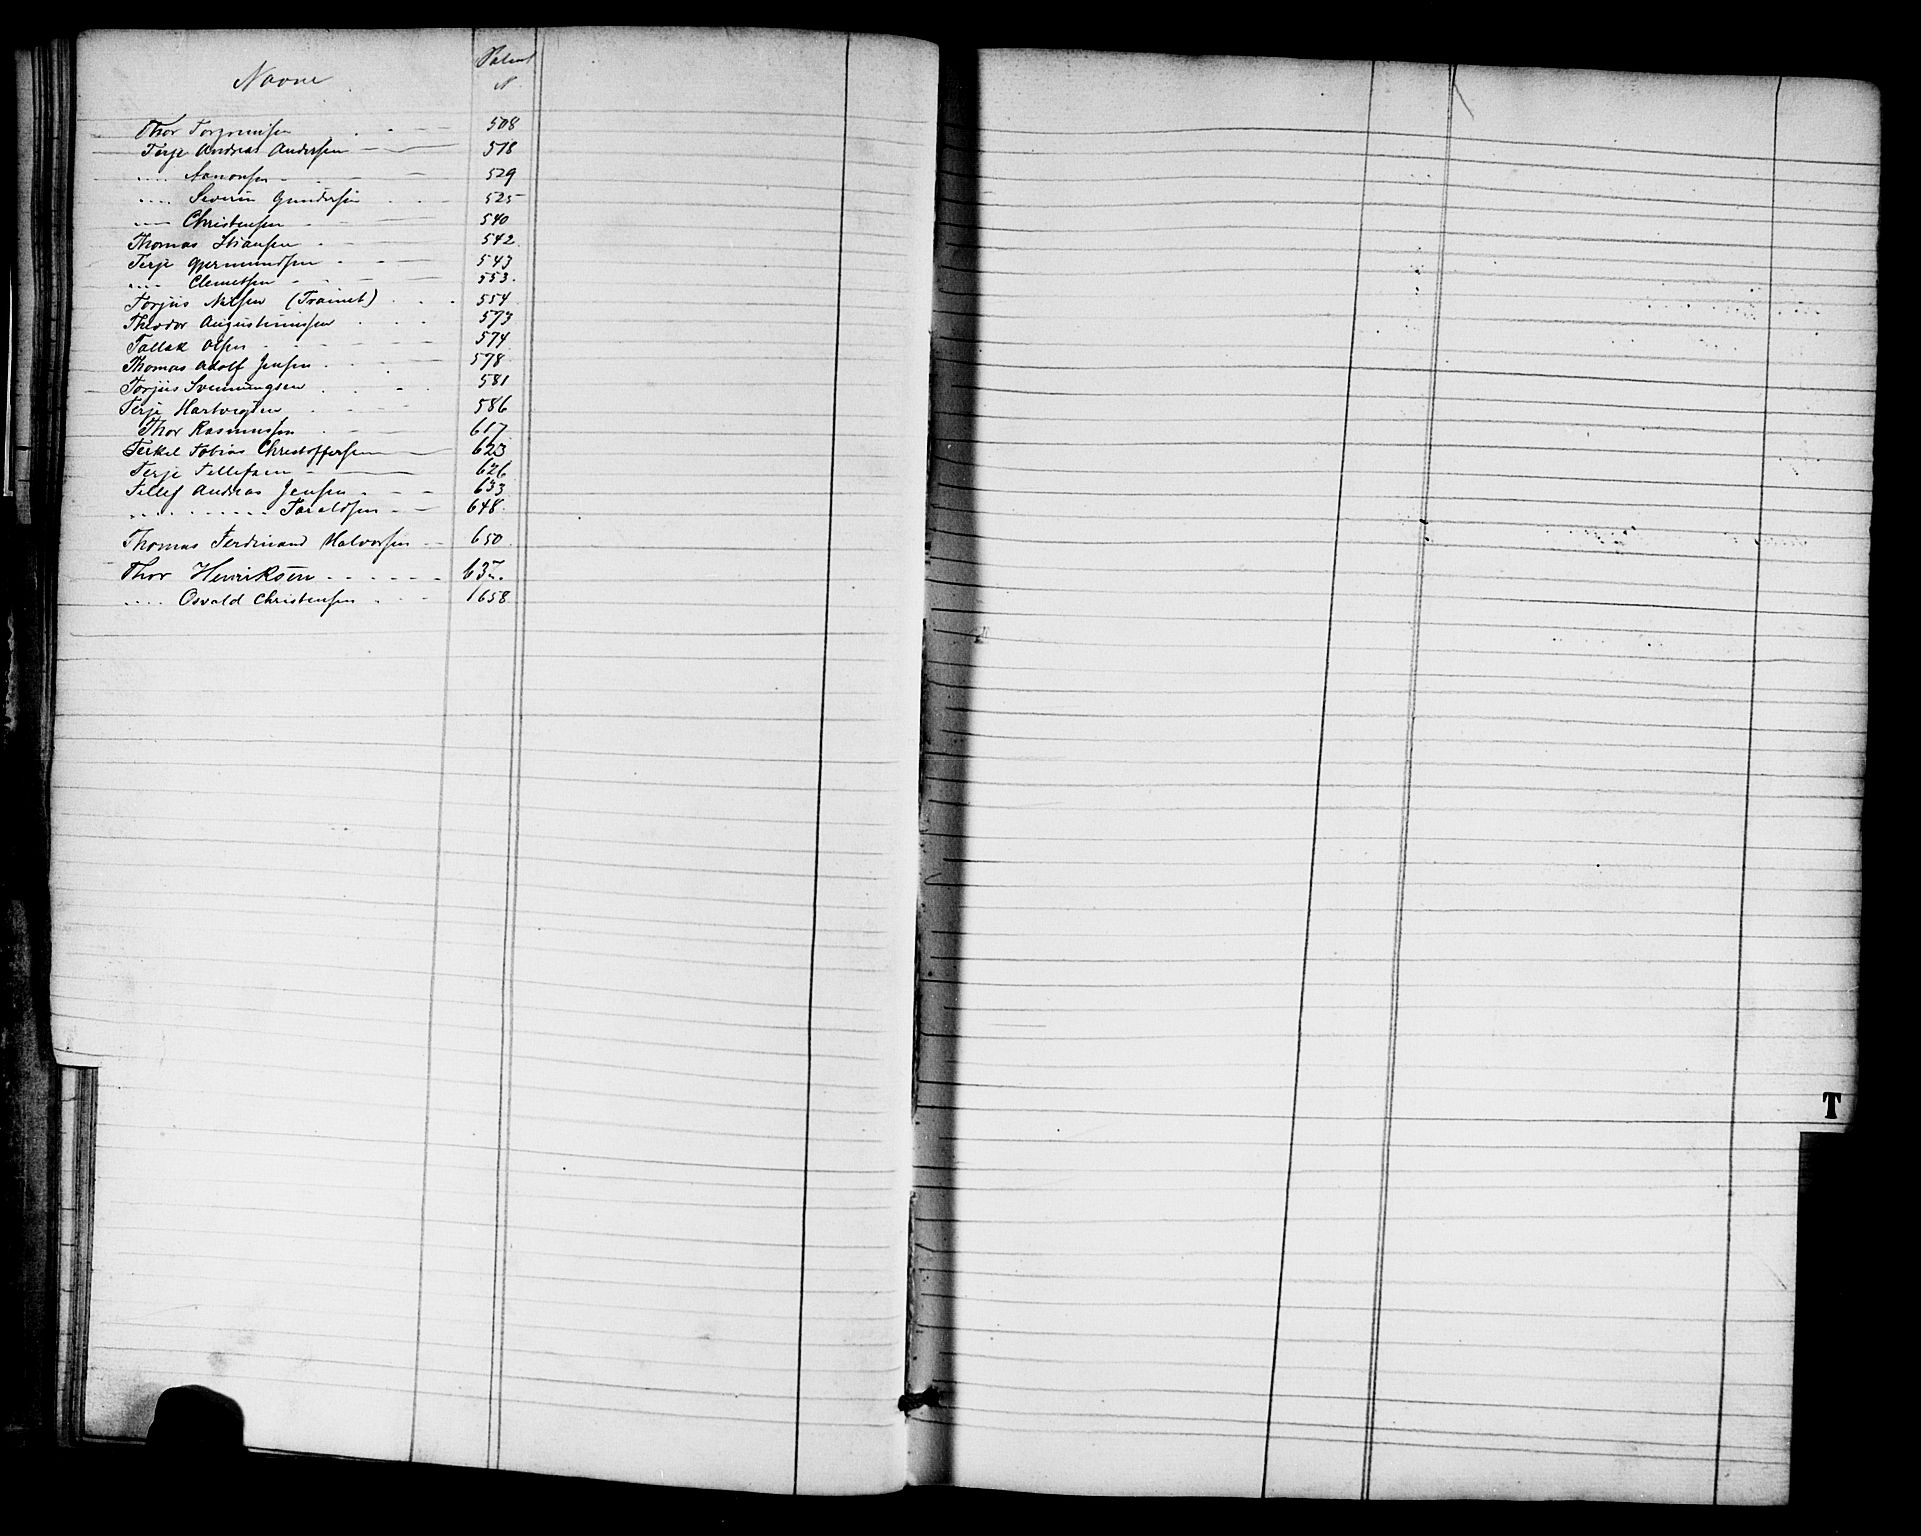 Navne Patent
N.
Thor 508
Terje Andreas Andersen 518
.... Aanonsen 529
.... Severin Gundersen 525
.... Christensen 540
Thomas Hansen 542
Terje Gjermundsen 543
.... Clemetsen 553
Torjus Nilsen 554
Theodor Augustinussen 573
Tallak Olsen 574
Thomas Adolf Jensen 578
Torjus Svennungsen 581
Terje Hartvigsen 586
Thor Rasmussen 617
Terkel Tobias Christoffersen 623
Terje Tellefsen 626
Tellef Andreas Jensen 633
.......... Taraldsen 648
Thomas Ferdinand Halvorsen 650
Thor Henriksen
.... Osvald Christensen 1658
T